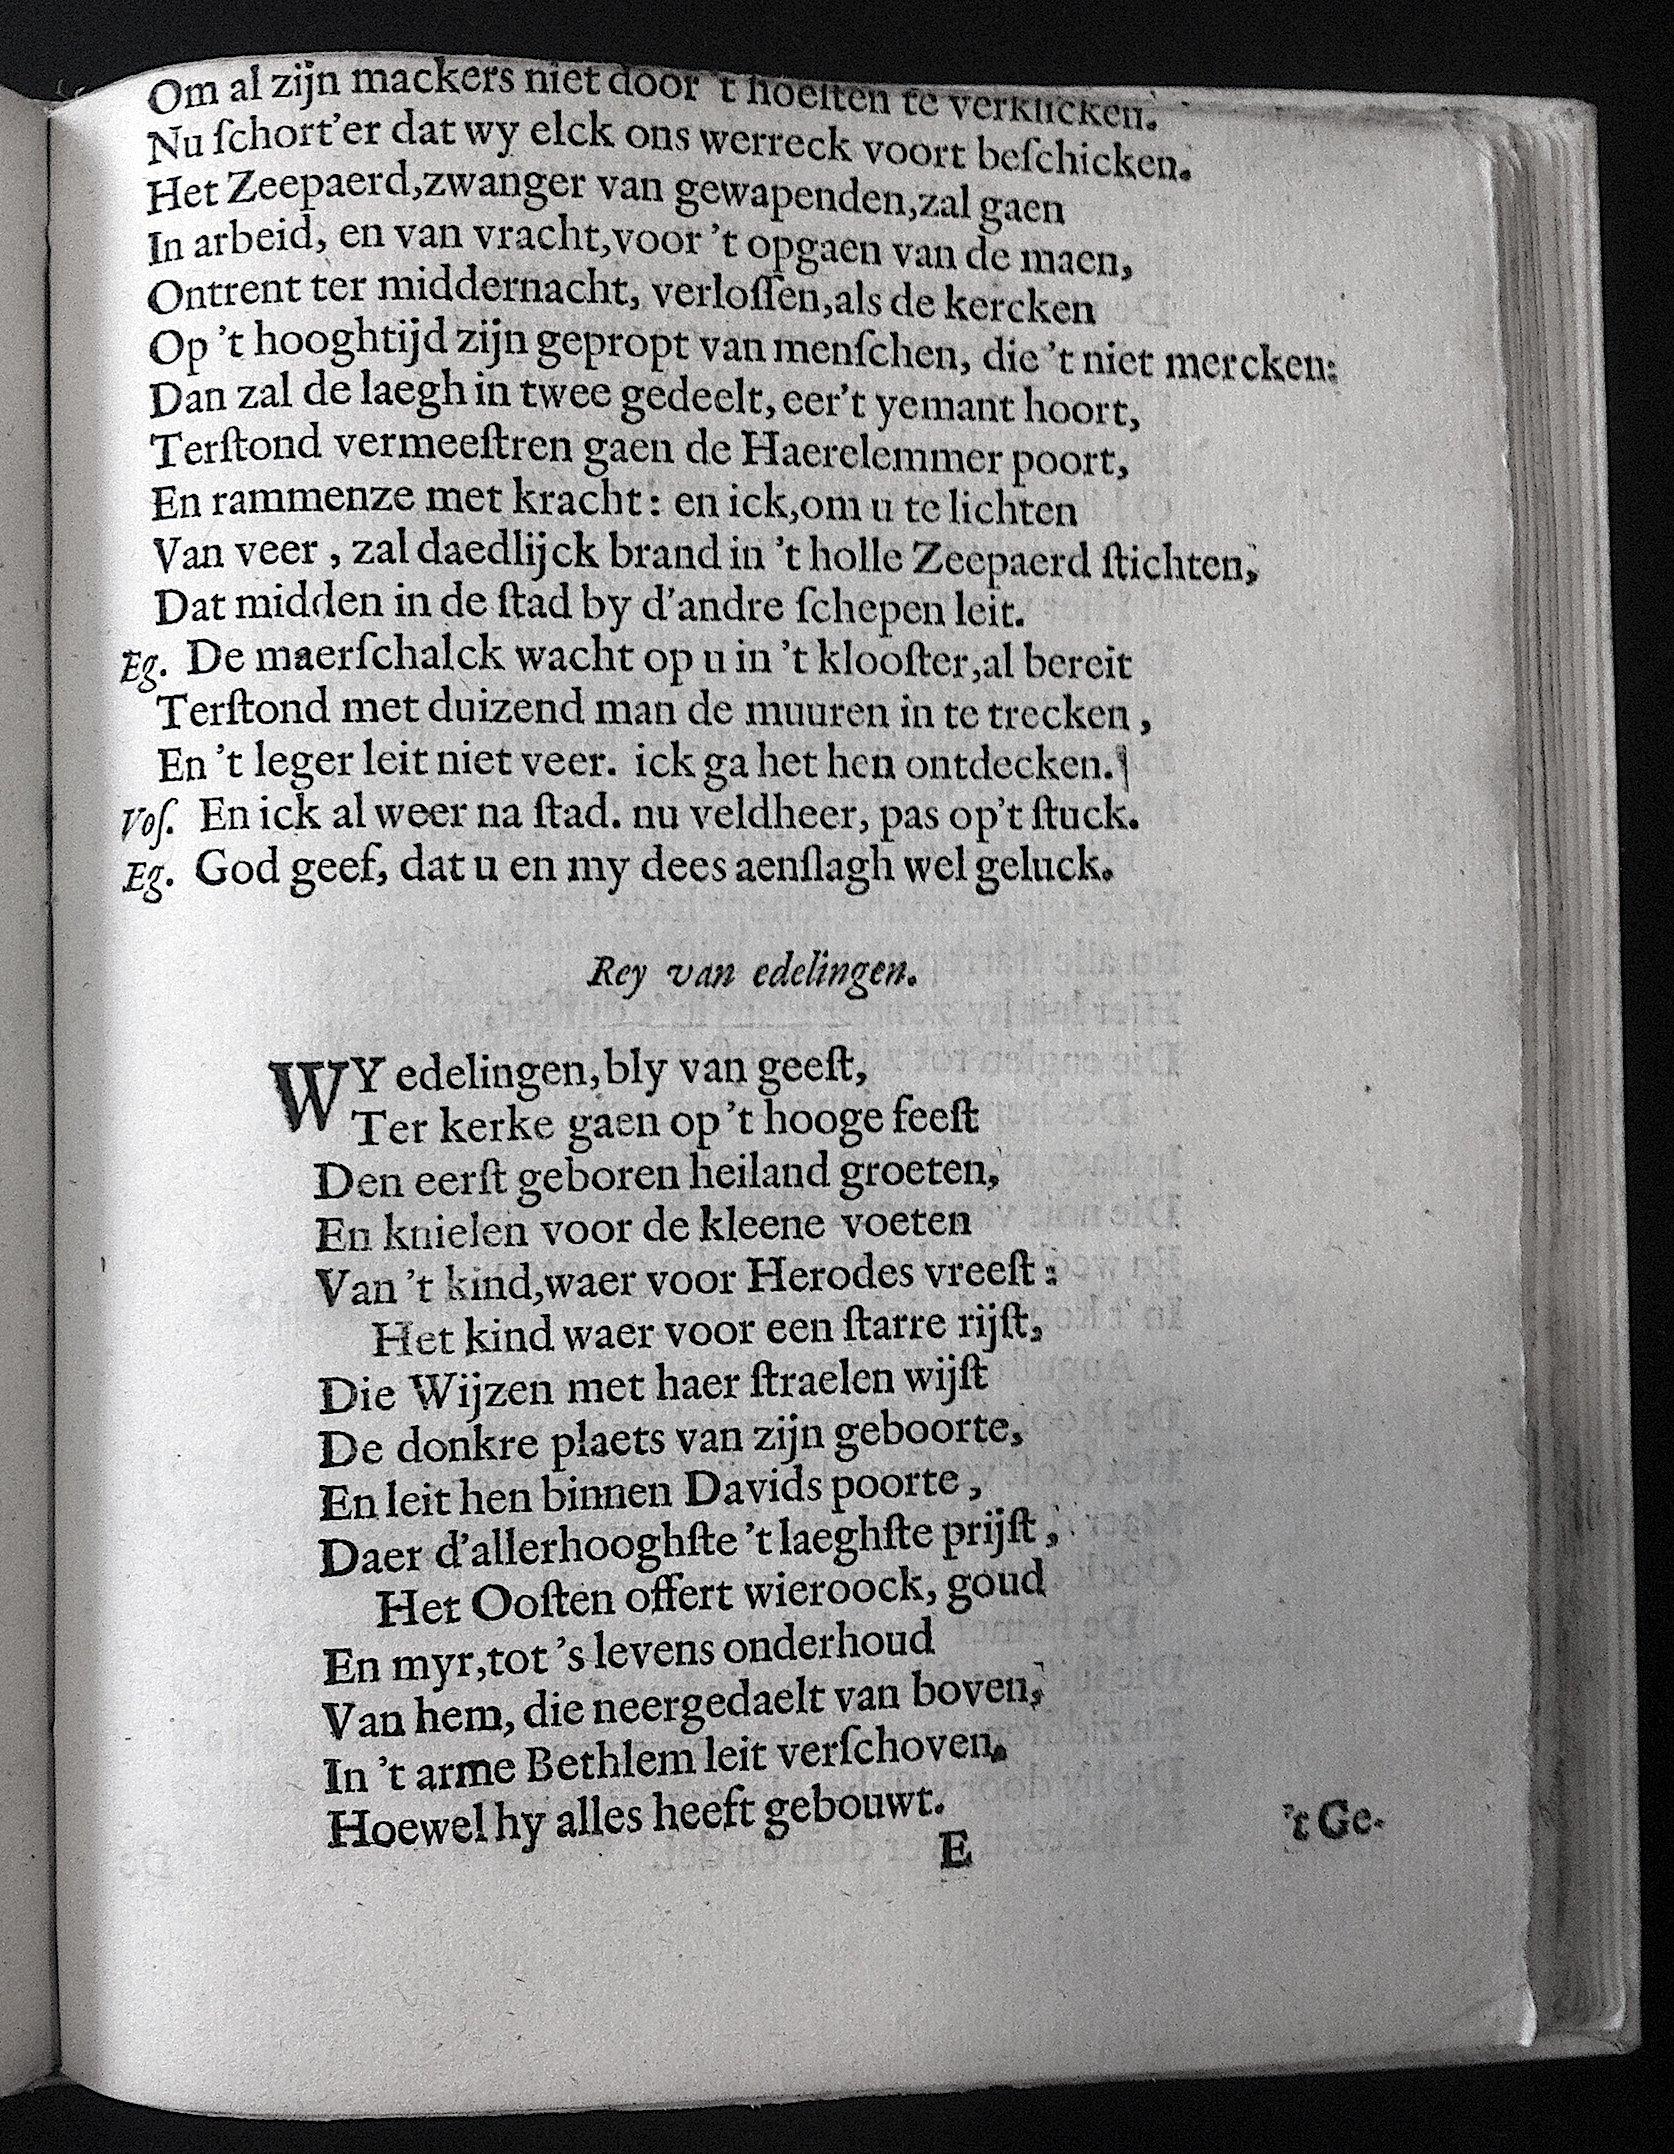 Om al zijn mackers niet door 't hoesten te verklicken.
Nu ſchort'er dat wy elck ons werreck voort beſchicken.
Het Zeepaerd,zwanger van gewapenden,zal gaen
In arbeid, en van vracht,voor 't opgaen van de maen,
Ontrent ter middernacht, verloſſen,als de kercken
Op 't hooghtijd zijn gepropt van menſchen, die 't niet mercken:
Dan zal de laegh in twee gedeelt, eer't yemant hoort,
Terſtond vermeeſtren gaen de Haerelemmer poort,
En rammenze met kracht: en ick,om u te lichten
Van veer , zal daedlijck brand in 't holle Zeepaerd ſtichten,
Dat midden in de ſtad by d'andre ſchepen leit.
Eg. De maerſchalck wacht op u in 't klooſter,al bereit
Terſtond met duizend man de muuren in te trecken ,
En 't leger leit niet veer. ick ga het hen ontdecken.
Voſ. En ick al weer na ſtad. nu veldheer, pas op't ſtuck.
Eg. God geef, dat u en my dees aenſlagh wel geluck.
Rey van edelingen.
WY edelingen,bly van geeſt,
Ter kerke gaen op 't hooge feeſt
Den eerſt geboren heiland groeten,
En knielen voor de kleene voeten
Van 't kind,waer voor Herodes vreeſt:
Het kind waer voor een ſtarre rijſt,
Die Wijzen met haer ſtraelen wijſt
De donkre plaets van zijn geboorte,
En leit hen binnen Davids poorte ,
Daer d'allerhooghſte 't laeghſte prijſt,
Het Ooſten offert wieroock, goud
En myr,tot 's levens onderhoud
Van hem, die neergedaelt van boven,
In 't arme Bethlem leit verſchoven.
Hoewel hy alles heeft gebouwt.
E
't Ge-